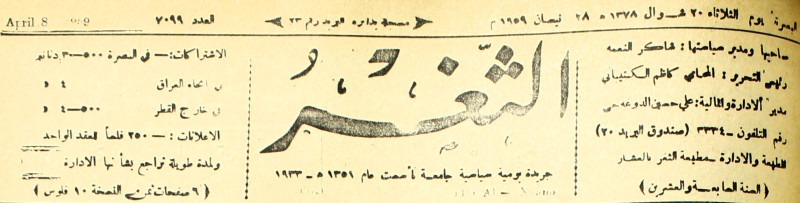 البصرة يوم الثلاثاء ٢٠ شوال ١٣٧٨ ه ٢٨ نيسان ١٩٥٩ م
مسجلة بدائرة البريد رقم ٢٣
العدد ٧٠٩٩
April 8
صاحبها ومدير سياستها : شاكر النعمه
رئيس التحرير : المحامي كاظم
مدير الادارة والمالية : علي حسين
رقم التلفون - ٣٣٣٤ (صندوق البريد ٢٠)
الطبعة والادارة - مطبعة الثغر بالعشار
( السنة السابعة والعشرين )
الثغر
جريدة يومية سياسية جامعة تأسست عام ١٣٥١ ه - ١٩٣٣
الاشتراكات : - في البصرة ٥٠٠-٣ دنانير
في انحاء العراق ٤ د
في خارج القطر ٥٠٠-٤ د
الاعلانات : - ٢٥٠ فلساً للعقد الواحد
ولمدة طويلة تراجع بشأنها الادارة
( ٦ صفحات ثمن النسخة ١٠ فلوس )